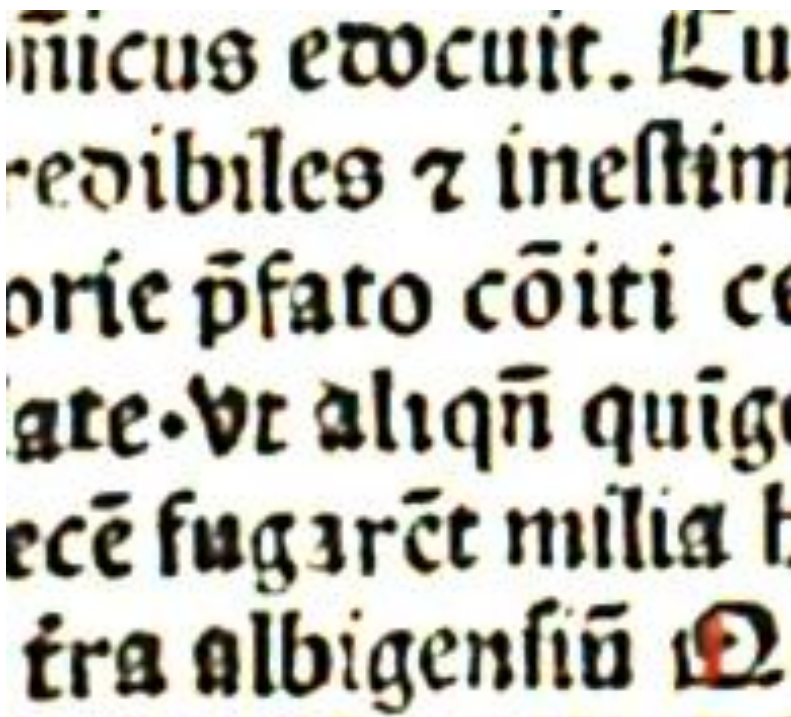 onicus edocuit. Cu
redibiles ⁊ inestim
orie p̄fato cōiti ce
ate·Vt aliqn̄ quīge
ecē fugarēt milia h
tra albigensiū M